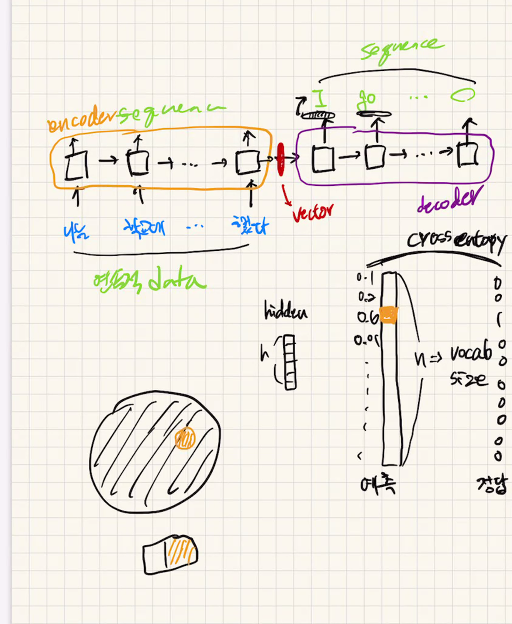 sequence
I go ... O
encoder sequence
→ → ... →
→ → ... →
vector
decoder
나는 학교에 ... 갔다
data
cross entropy
hidden
h
0.1 0
0.2 0
0.6 1
0.01 0
n ⇒ vocab size
0
0
0
0
0
0
예측 정답